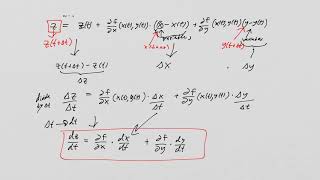 z = z(t) + ∂f/∂x (x(t), y(t)) · (x - x(t)) + ∂f/∂y (x(t), y(t)) (y - y(t))
z(t+Δt) x(t+Δt) y(t+Δt)
z(t+Δt) - z(t) Δx Δy
Δz
Δz/Δt = ∂f/∂x (x(t), y(t)) · Δx/Δt + ∂f/∂y (x(t), y(t)) · Δy/Δt
Δt → 0
dz/dt = ∂f/∂x · dx/dt + ∂f/∂y · dy/dt